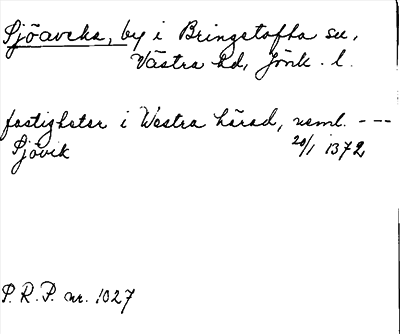 Sjöavcka, by i Bringstofta sn,
Västra hd, Jönk. l.
fastigheter i Westra härad, neml. ---
Sjövik 20/1 1372
P.R.P. nr. 1027